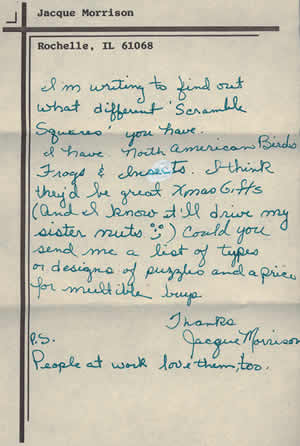 Jacque Morrison
Rochelle, IL 61068
I'm writing to find out
what different 'Scramble
Squares' you have.
I have North American Birds
Frogs & Insects. I think
they'd be great Xmas Gifts
(And I know it'll drive my
sister nuts) Could you
send me a list of types
or designs of puzzles and a price
for multible buys
Thanks
Jacque Morrison
P.S.
People at work love them, too.